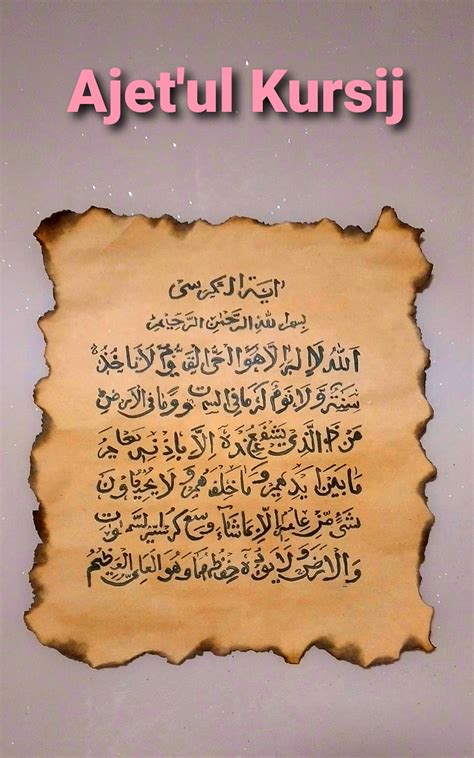 Ajet'ul Kursij
اية الكرسى
بسم الله الرحمن الرحيم
الله لا إله إلا هو الحي القيوم لا تاخذه
سنة ولا نوم له ما في السموت وما في الارض
من ذا الذي يشفع عنده الا باذنه يعلم
ما بين ايديهم وما خلفهم ولا يحيطون
بشيء من علمه الا بما شاء وسع كرسيه السموت
والارض ولا يوده حفظهما وهو العلي العظيم